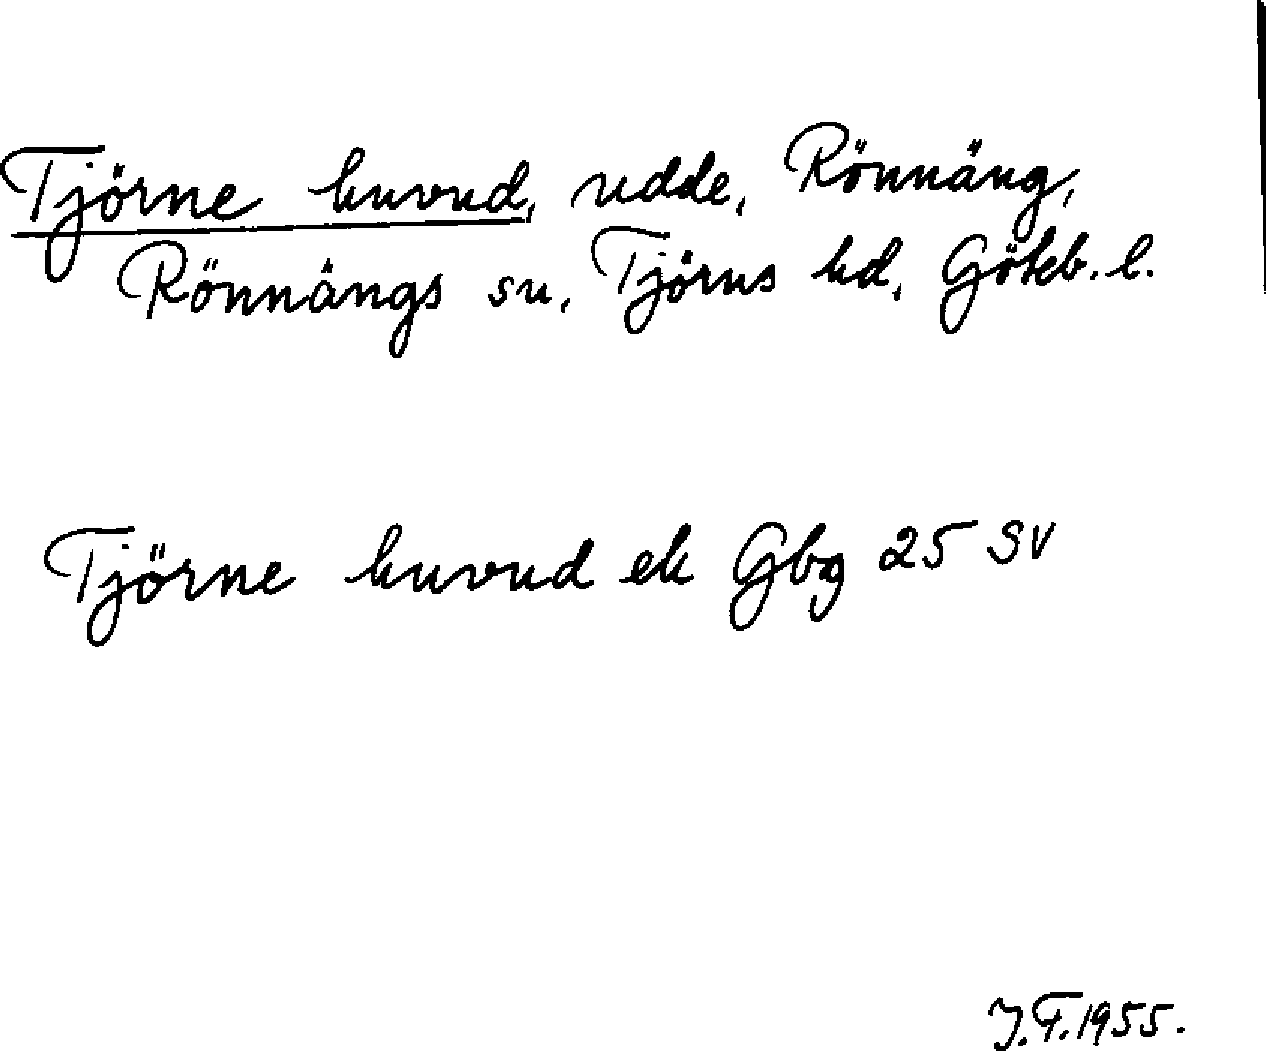 Tjörne huvud, udde, Rönnäng,
Rönnängs sn, Tjörns hd, Götebs. l.
Tjörne huvud ek Gbg 25 SV
J.F. 1955.